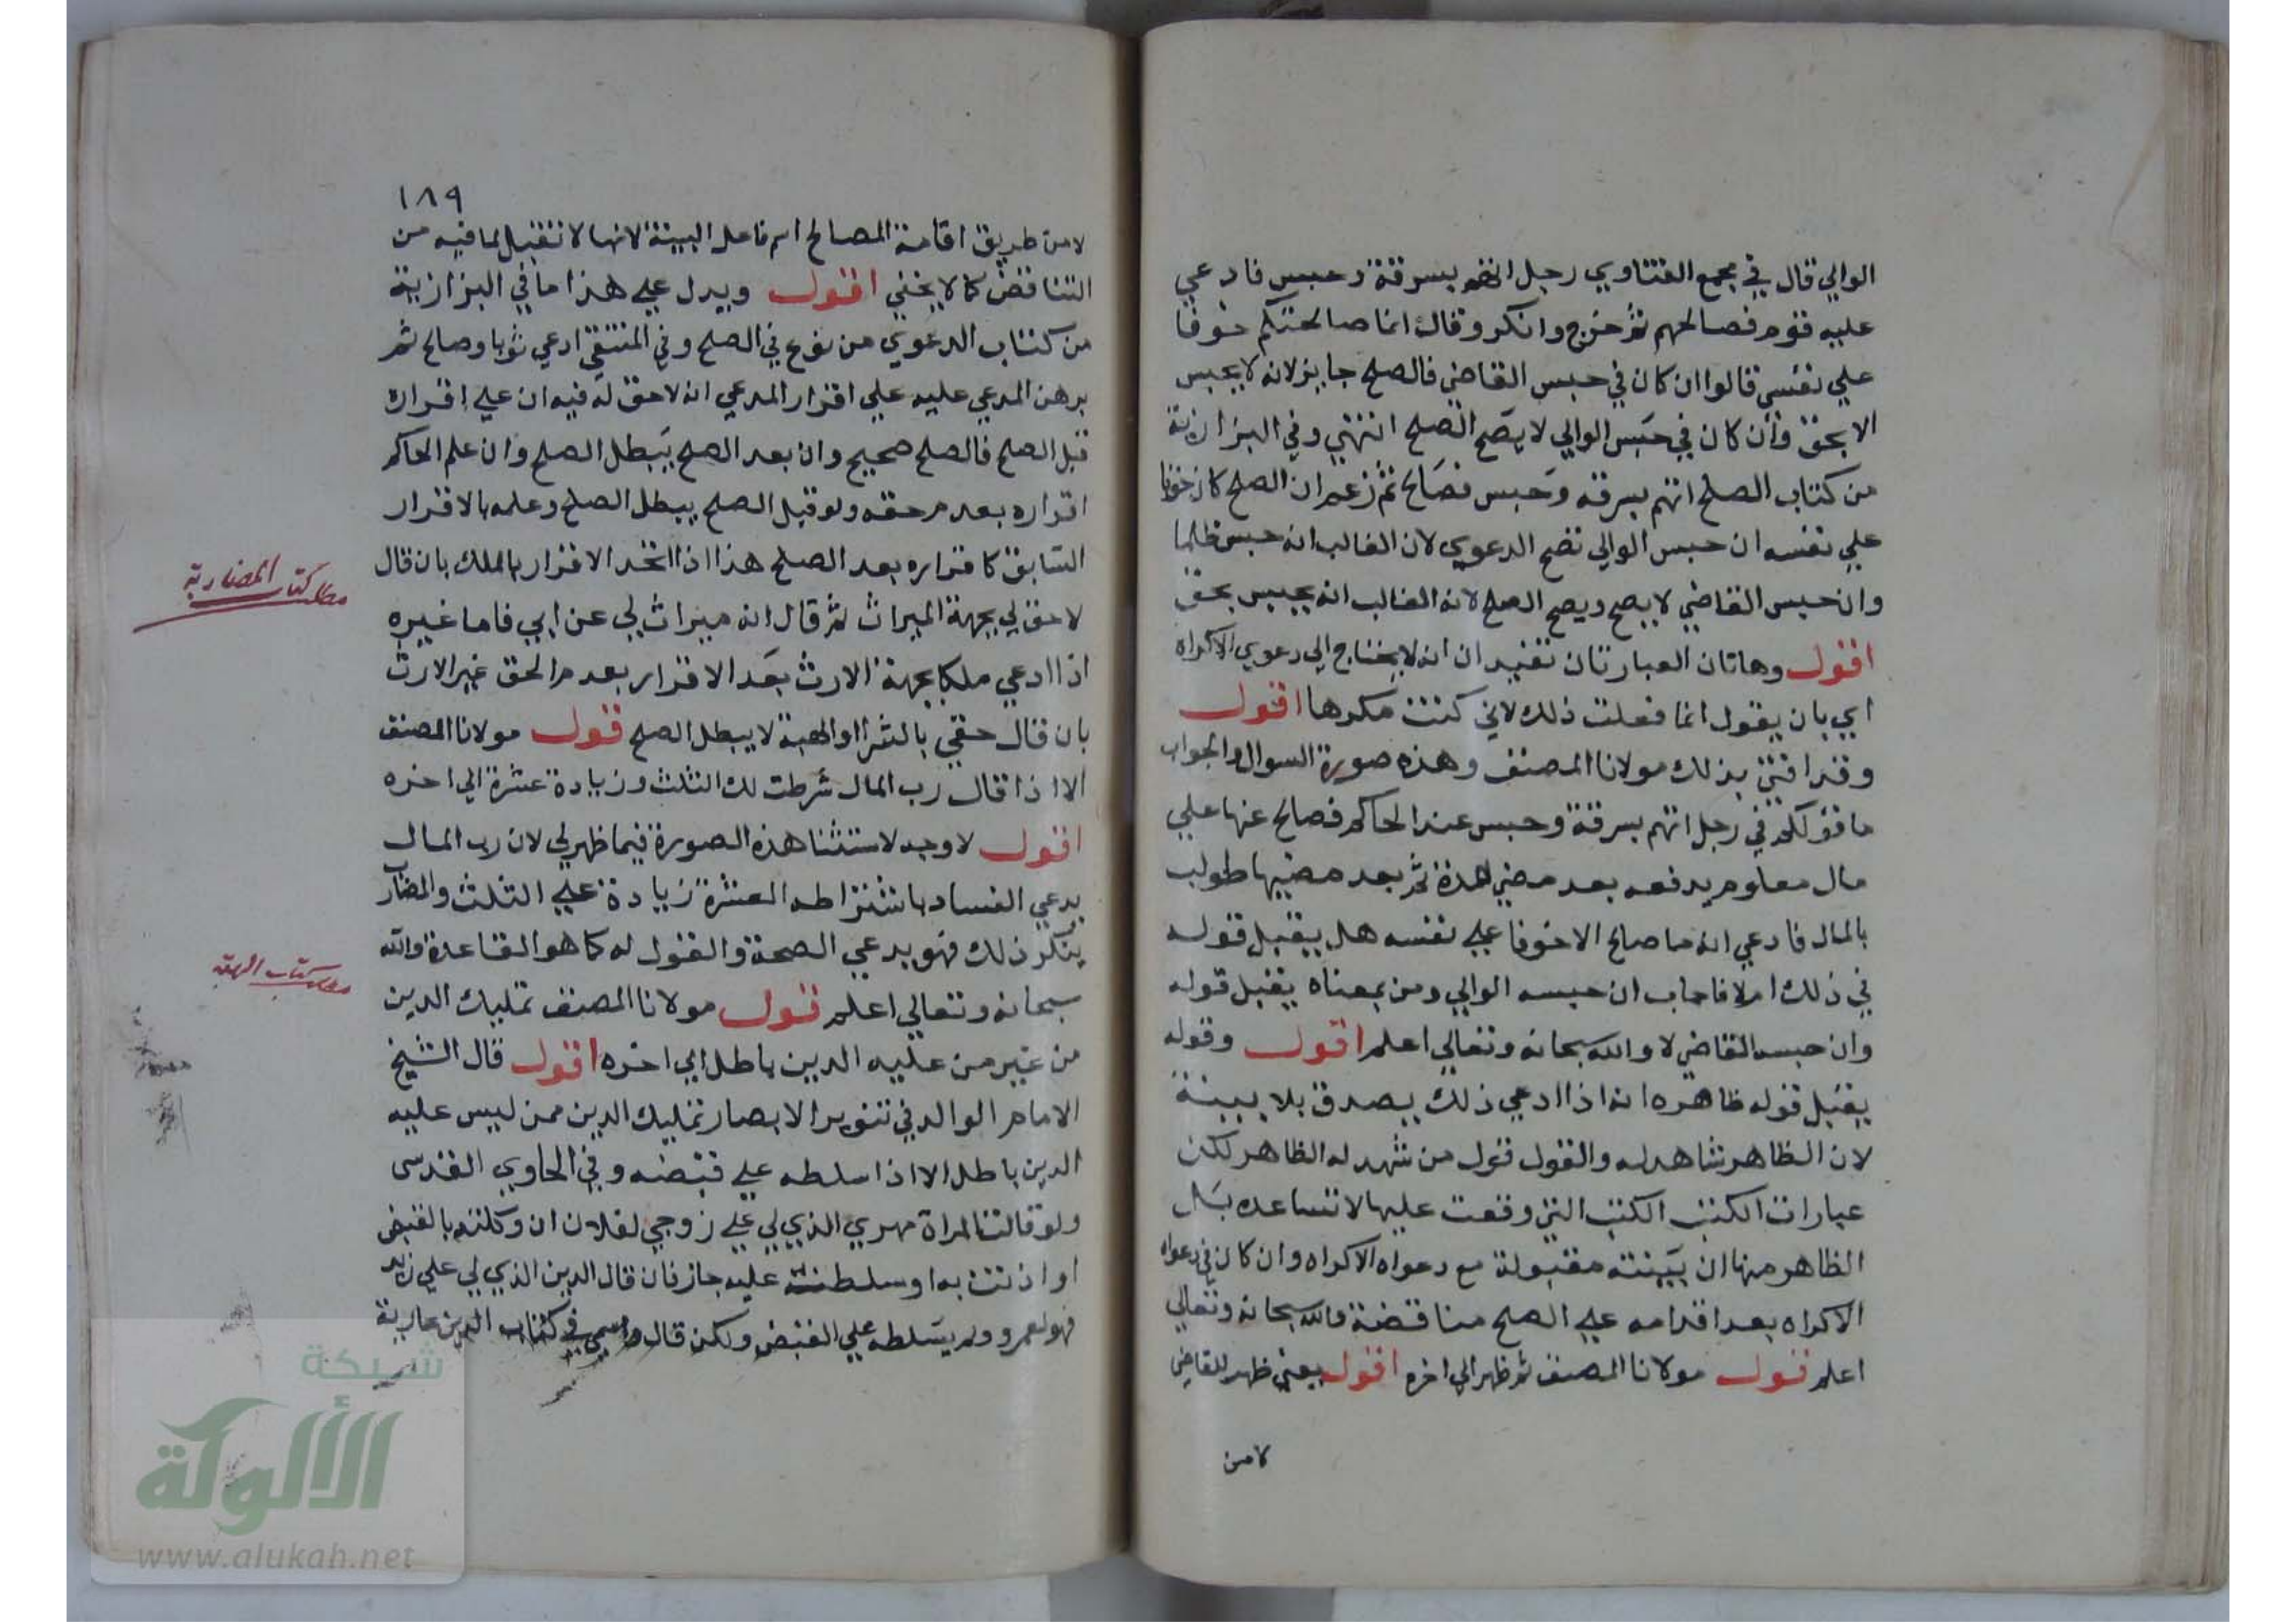 الوالي قال في مجمع الفتاوي رجل اتهم بسرقة وحبس فادعي
عليه قوم فصالحهم ثم خرج وانكر وقال انما صالحتكم خوفا
علي نفسي قالوا ان كان في حبس القاضي فالصلح جايز لانه لا يحبس
الا بحق وان كان في حبس الوالي لا يصح الصلح انتهي وفي البزازية
من كتاب الصلح اتهم بسرقه وحبس فصالح ثم زعم ان الصلح كان خوفا
علي نفسه ان حبس الوالي تصح الدعوي لان الغالب انه حبس ظلما
وان حبس القاضي لا يصح ويصح الصلح لانه الغالب انه يحبس بحق
اقول وهاتان العبارتان تفيدان انه لا يحتاج الي دعوي الاكراه
اي بان يقول انما فعلت ذلك لاني كنت مكرها اقول
وقد افتي بذلك مولانا المصنف وهذه صورة السوال والجواب
ما قولكم في رجل اتهم بسرقة وحبس عند الحاكم فصالح عنها علي
مال معلوم يدفعه بعد مضي المدة ثم بعد مضيها طولب
بالمال فادعي انه ما صالح الا خوفا علي نفسه هل يقبل قوله
في ذلك ام لا فاجاب ان حبسه الوالي ومن بمعناه يقبل قوله
وان حبسه القاضي لا والله سبحانه وتعالي اعلم اقول وقوله
يقبل قوله ظاهره انه اذا ادعي ذلك يصدق بلا بينة
لان الظاهر شاهد له والقول قول من شهد له الظاهر لكن
عبارات الكتب الكتب التي وقعت عليها لا تساعده بل
الظاهر منها ان بينته مقبولة مع دعواه الاكراه وان كان في دعواه
الاكراه بعد اقدامه علي الصلح مناقضة والله سبحانه وتعالي
اعلم قول مولانا المصنف ثم ظهر الي اخره اقول يعني ظهر للقاضي
لا من
١٨٩
لا من طريق اقامة المصالح اسم فاعل البينة لانها لا تقبل لما فيه من
التناقض كما لا يخفي اقول ويدل علي هذا ما في البزازية
من كتاب الدعوي من نوع في الصلح وفي المنتقي ادعي ثوبا وصالح ثم
برهن المدعي عليه علي اقرار المدعي انه لا حق له فيه ان علي اقراره
قبل الصلح فالصلح صحيح وان بعد الصلح يبطل الصلح وان علم الحاكم
اقراره بعدم حقه ولو قبل الصلح يبطل الصلح وعلمه بالاقرار
السابق كاقراره بعد الصلح هذا اذا اتحد الاقرار بالملك بان قال
لا حق لي بجهة الميراث ثم قال انه ميراث لي عن ابي فاما غيره
اذا ادعي ملكا بجهة الارث بعد الاقرار بعدم الحق غير الارث
بان قال حقي بالشرا او الهبة لا يبطل الصلح قول مولانا المصنف
الا اذا قال رب المال شرطت لك الثلث وزيادة عشرة الي اخره
اقول لا وجه لاستثنا هذه الصورة فيما ظهر لي لان رب المال
يدعي الفساد باشتراطه العشرة زيادة علي الثلث والمضارب
ينكر ذلك فهو يدعي الصحة والقول له كما هو القاعدة والله
سبحانه وتعالي اعلم قول مولانا المصنف تمليك الدين
من غير من عليه الدين باطل الي اخره اقول قال الشيخ
الامام الوالد في تنوير الابصار تمليك الدين ممن ليس عليه
الدين باطل الا اذا سلطه علي قبضه وفي الحاوي القدسي
ولو قالت المراة مهري الذي لي علي زوجي لفلان ان وكلته بالقبض
او اذنت به او سلطته عليه جاز فان قال الدين الذي لي علي زيد
فهو لعمرو ولم يسلطه علي القبض ولكن قال واسمي في كتاب الدين عارية
كتاب المضاربة
كتاب الهبة
شبكة
الألوكة
www.alukah.net